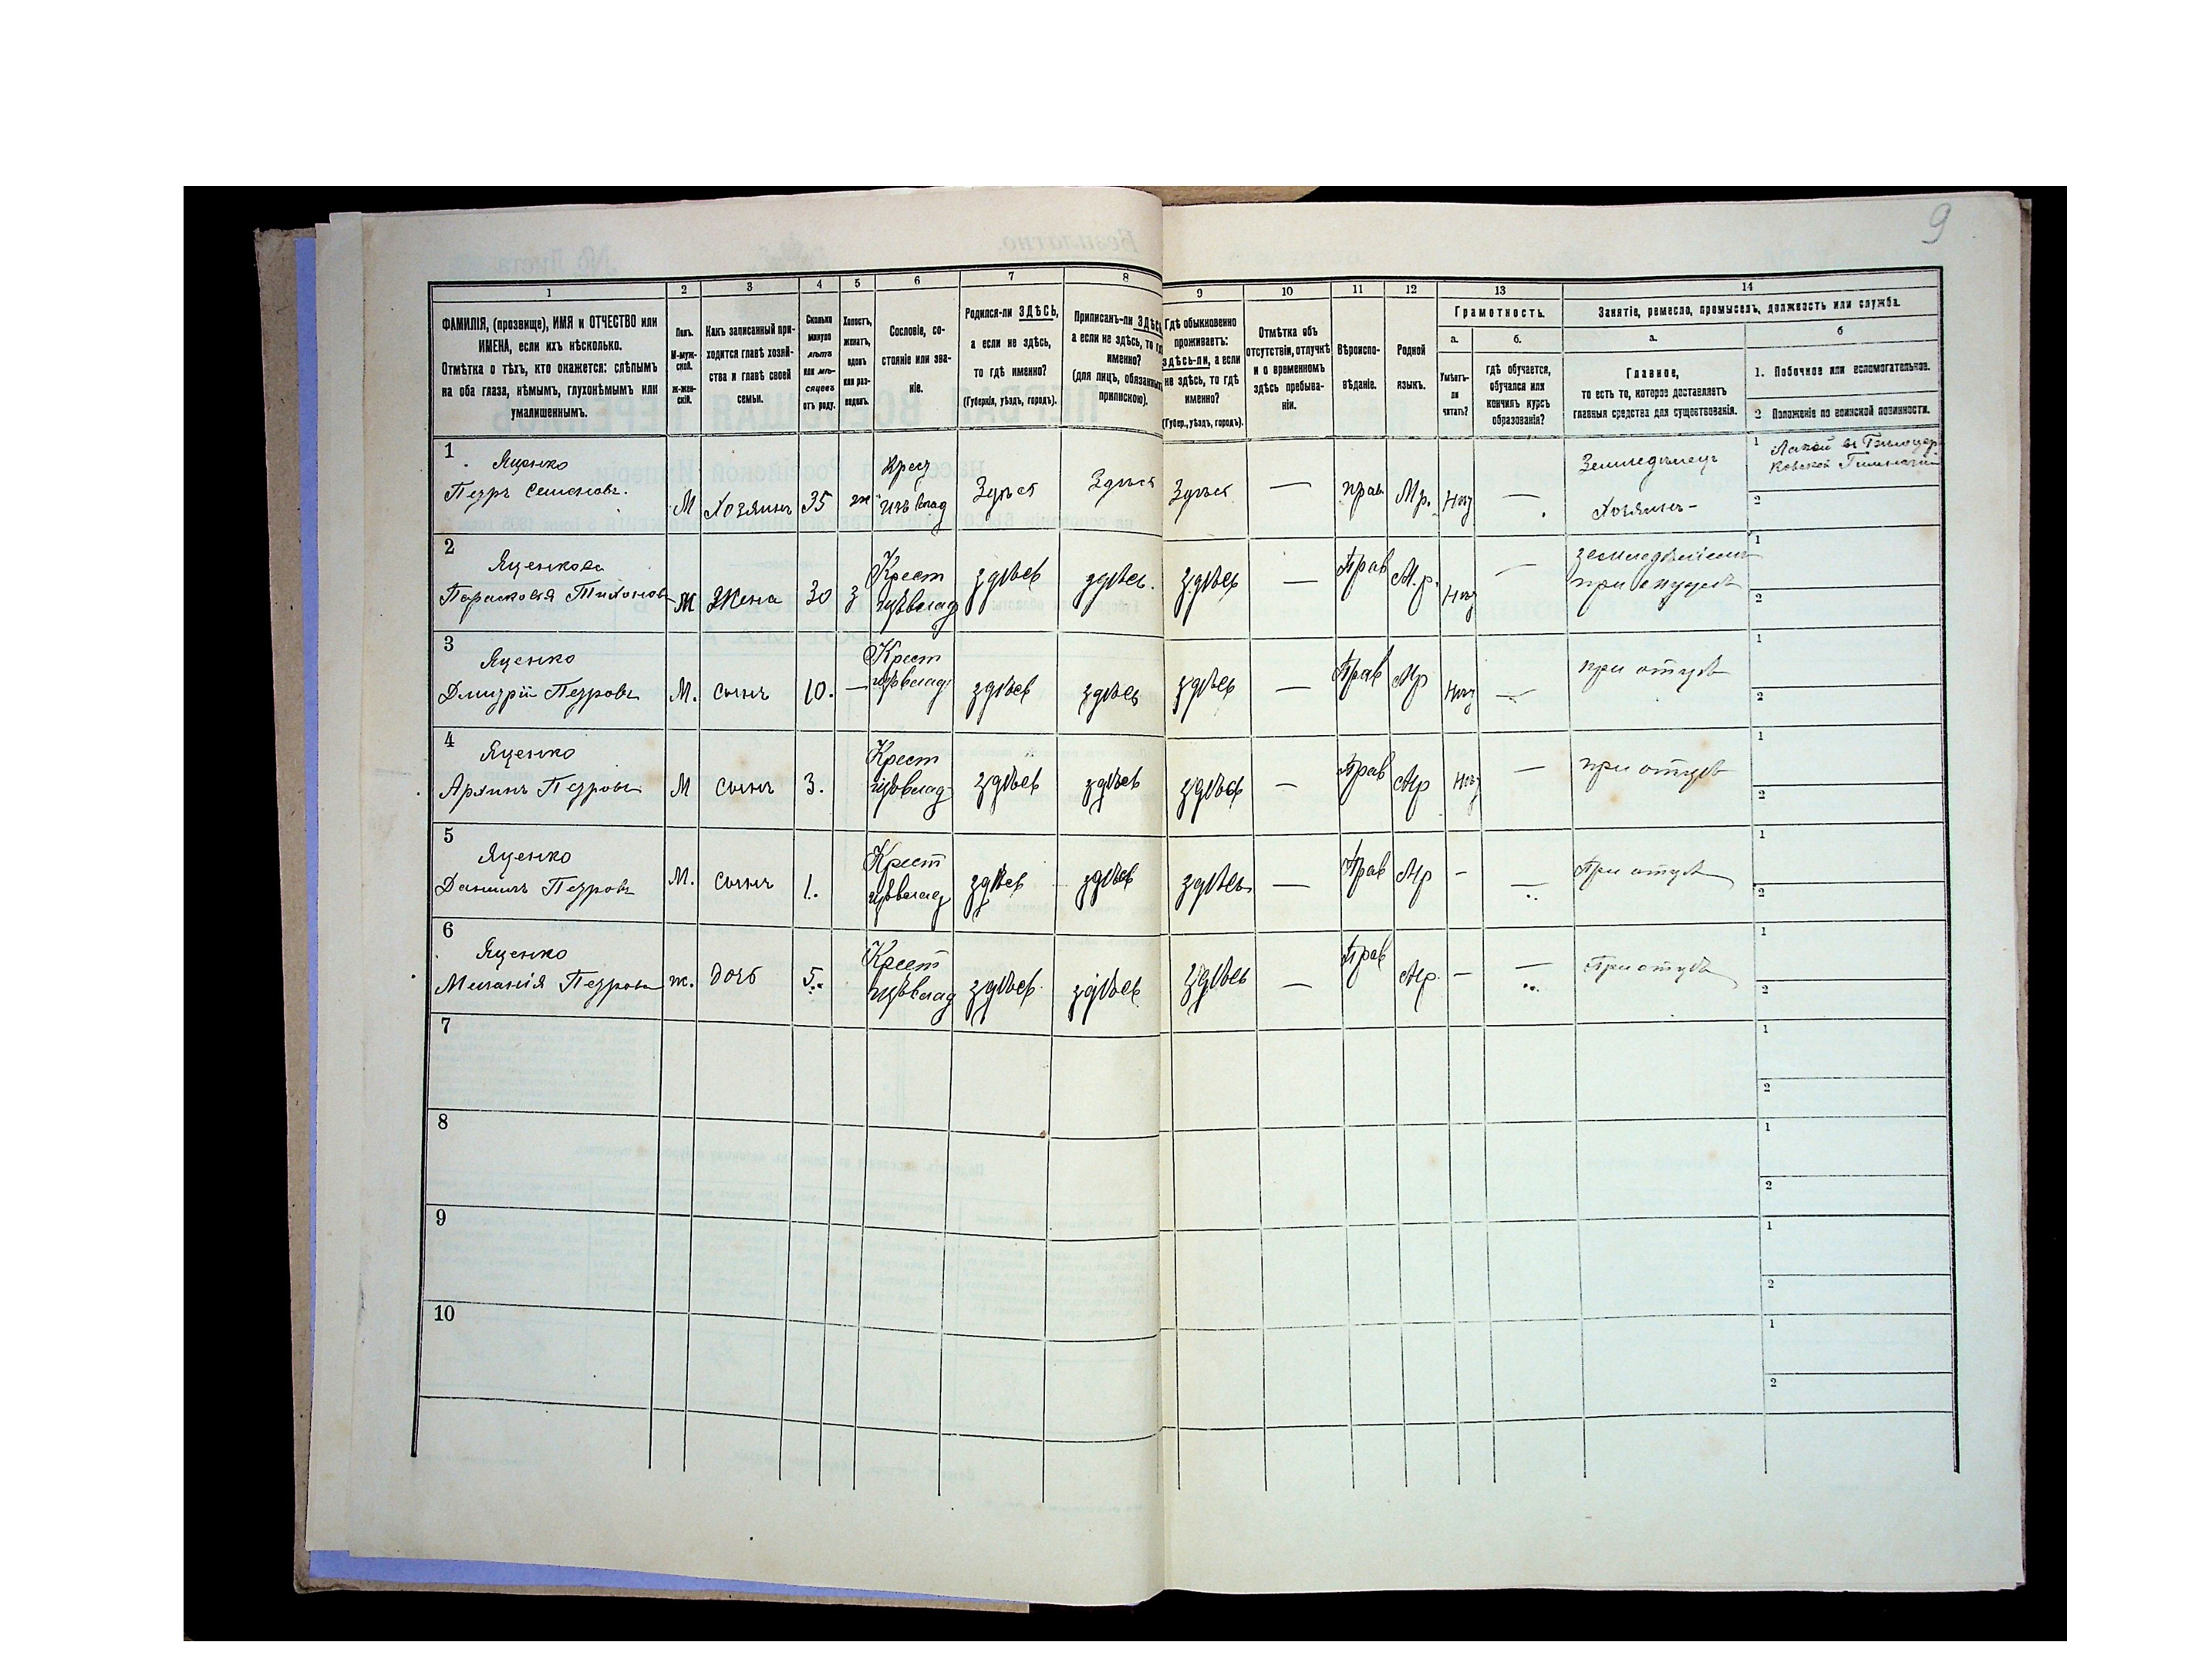 9
1
2
3
4
5
6
7
8
9
10
11
12
13
14
ФАМИЛІЯ, (прозвище), ИМЯ и ОТЧЕСТВО или
ИМЕНА, если ихъ нѣсколько.
Отмѣтка о тѣхъ, кто окажется: слѣпымъ
на оба глаза, нѣмымъ, глухонѣмымъ или
умалишеннымъ.
Полъ.
М-муж-
ской.
ж-жен-
скій.
Какъ записанный при-
ходится главѣ хозяй-
ства и главѣ своей
семьи.
Сколько
минуло
лѣтъ
или мѣ-
сяцевъ
отъ роду.
Холостъ,
женатъ,
вдовъ
или раз-
веденъ.
Сословіе, со-
стояніе или зва-
ніе.
Родился-ли ЗДѢСЬ,
а если не здѣсь,
то гдѣ именно?
(Губернія, уѣздъ, городъ).
Приписанъ-ли ЗДѢСЬ,
а если не здѣсь, то гдѣ
именно?
(для лицъ, обязанныхъ
припискою).
Гдѣ обыкновенно
проживаетъ:
здѣсь-ли, а если
не здѣсь, то гдѣ
именно?
(Губер., уѣздъ, городъ).
Отмѣтка объ
отсутствіи, отлучкѣ
и о временномъ
здѣсь пребыва-
ніи.
Вѣроиспо-
вѣданіе.
Родной
языкъ.
Грамотность.
а.
б.
Умѣетъ-
ли
читать?
гдѣ обучается,
обучался или
кончилъ курсъ
образованія?
Занятіе, ремесло, промыселъ, должность или служба.
а.
б
Главное,
то есть то, которое доставляетъ
главныя средства для существованія.
1. Побочное или вспомогательное.
2 Положеніе по воинской повинности.
1
Яценко
Петръ Семеновъ.
М
Хозяинъ
35
ж
Крест
изъ влад
Здѣсь
Здѣсь
Здѣсь
—
прав
Мр.
Нѣт
—
Земледѣлец
Хозяинъ-
1 Лакей въ Бѣлоцер
ковской Гимназіи
2
2
Яценкова
Парасковія Тихонов
Жена
30
з
Крест
изъ влад
здѣсь
здѣсь.
здѣсь
—
Прав
М.р.
Нѣт
—
земледѣліем
при мужѣ
1
2
3
Яценко
Дмитрій Петровъ
М.
сынъ
10.
—
Крест
изъ влад
здѣсь
здѣсь
здѣсь
—
Прав
Мр
Нѣт
—
при отцѣ
1
2
4
Яценко
Архипъ Петровъ
М
сынъ
3.
Крест
изъ влад
здѣсь
здѣсь
здѣсь
—
Прав
Мр
Нѣт
—
при отцѣ
1
2
5
Яценко
Данилъ Петровъ
М.
сынъ
1.
Крест
изъ влад
здѣсь
здѣсь
здѣсь
—
Прав
Мр
-
—
При отцѣ
1
2
6
Яценко
Меланія Петрова
ж.
дочь
5.
Крест
изъ влад
здѣсь
здѣсь
здѣсь
—
Прав
Мр.
—
—
При отцѣ
1
2
7
1
2
8
1
2
9
1
2
10
1
2